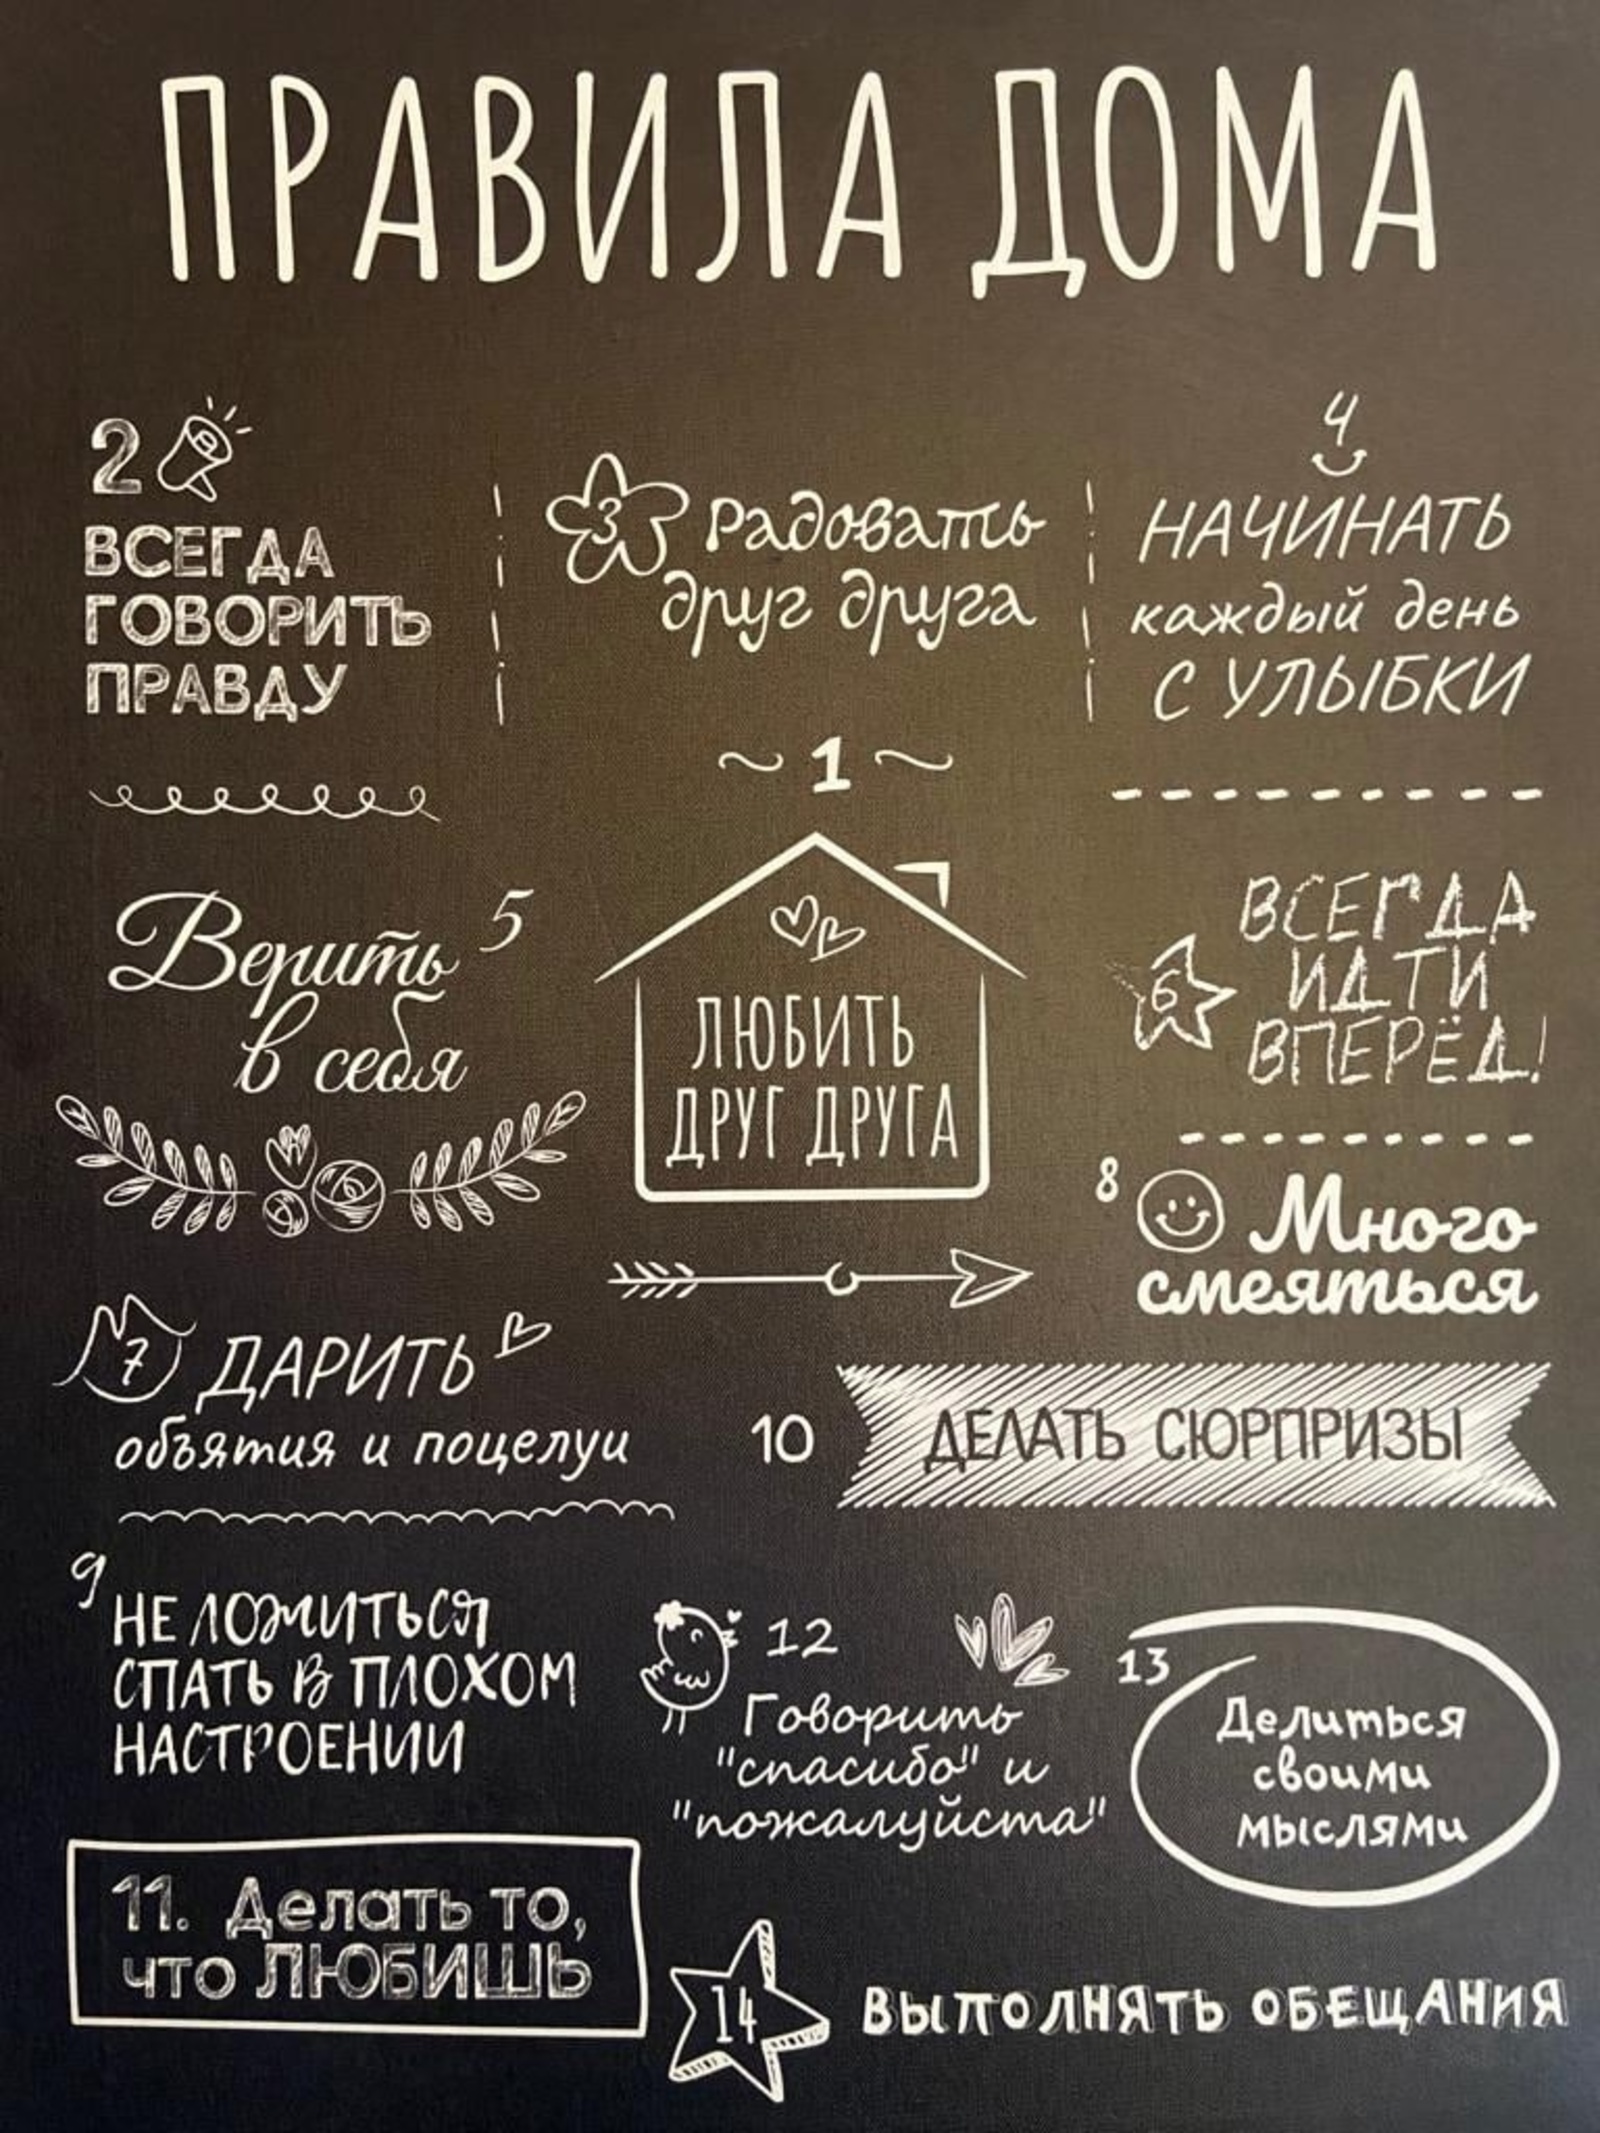 ПРАВИЛА ДОМА
2
ВСЕГДА
ГОВОРИТЬ
ПРАВДУ
3 Радовать
друг друга
4
НАЧИНАТЬ
каждый день
С УЛЫБКИ
1
ЛЮБИТЬ
ДРУГ ДРУГА
Верить 5
в себя
ВСЕГДА
6 ИДТИ
ВПЕРЁД!
7 ДАРИТЬ
объятия и поцелуи
8 Много
смеяться
10 ДЕЛАТЬ СЮРПРИЗЫ
9
НЕ ЛОЖИТЬСЯ
СПАТЬ В ПЛОХОМ
НАСТРОЕНИИ
12
Говорить
"спасибо" и
"пожалуйста"
13
Делиться
своими
мыслями
11. Делать то,
что ЛЮБИШЬ
14 ВЫПОЛНЯТЬ ОБЕЩАНИЯ